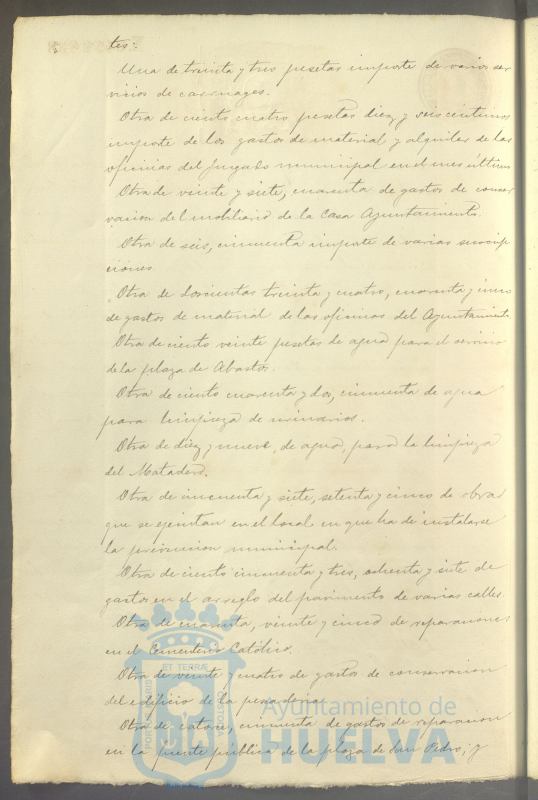 tes:
Una de treinta y tres pesetas importe de varios ser
vicios de carruages.
Otra de ciento cuatro pesetas diez y seis centimos
importe de los gastos de material y alquiler de las
oficinas del Juzgado municipal en el mes último
Otra de veinte y siete, cuarenta de gastos de conser
vacion del mobiliario de la Casa Ayuntamiento.
Otra de seis, cincuenta importe de varias suscrip
ciones.
Otra de doscientas treinta y cuatro, cuarenta y cinco
de gastos de material de las oficinas del Ayuntamiento
Otra de ciento veinte pesetas de agua para el servicio
de la plaza de Abastos.
Otra de ciento cuarenta y dos, cincuenta de agua
para limpieza de urinarios.
Otra de diez y nueve, de agua, para la limpieza
del Matadero.
Otra de cincuenta y siete, setenta y cinco de obras
que se ejecutan en el local en que ha de instalarse
la prevencion municipal.
Otra de ciento cincuenta y tres, ochenta y siete de
gastos en el arreglo del pavimento de varias calles.
Otra de cuarenta, veinte y cinco de reparaciones
en el Cementerio Católico.
Otra de veinte y cuatro de gastos de conservacion
del edificio de la pescaderia.
Otra de catorce, cincuenta de gastos de reparacion
en la fuente pública de la plaza de San Pedro; y
PORTUS MARIS
ET TERRÆ
CUSTODIA
Ayuntamiento de
HUELVA